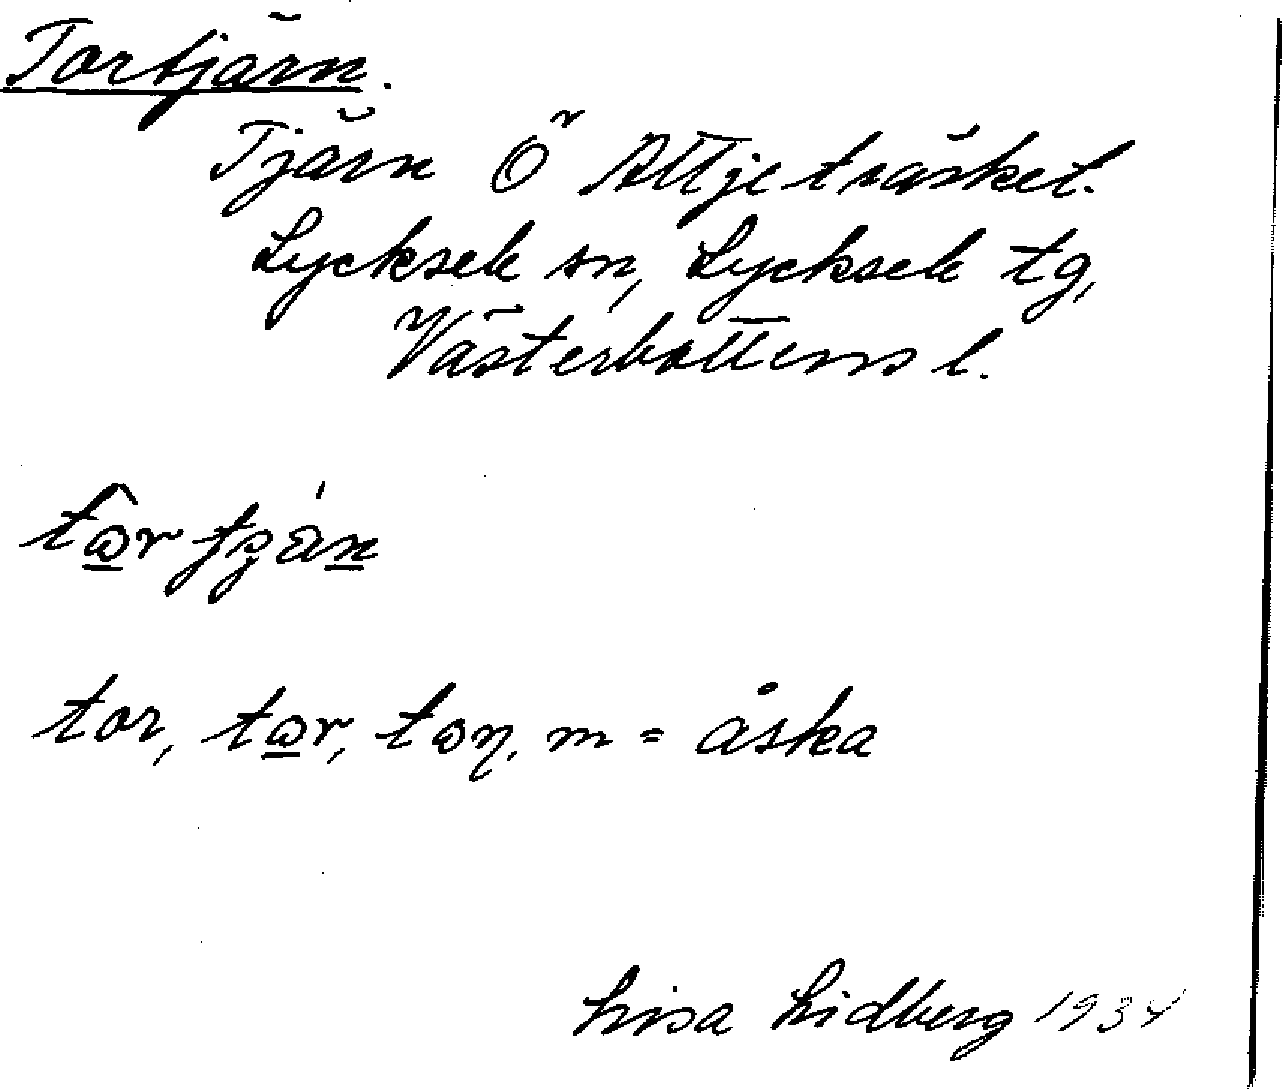 Tortjärn.
Tjärn Ö Attjeträsket.
Lycksele sn, Lycksele tg,
Västerbottens l.
tor, m = åska
Lisa Lidberg 1934